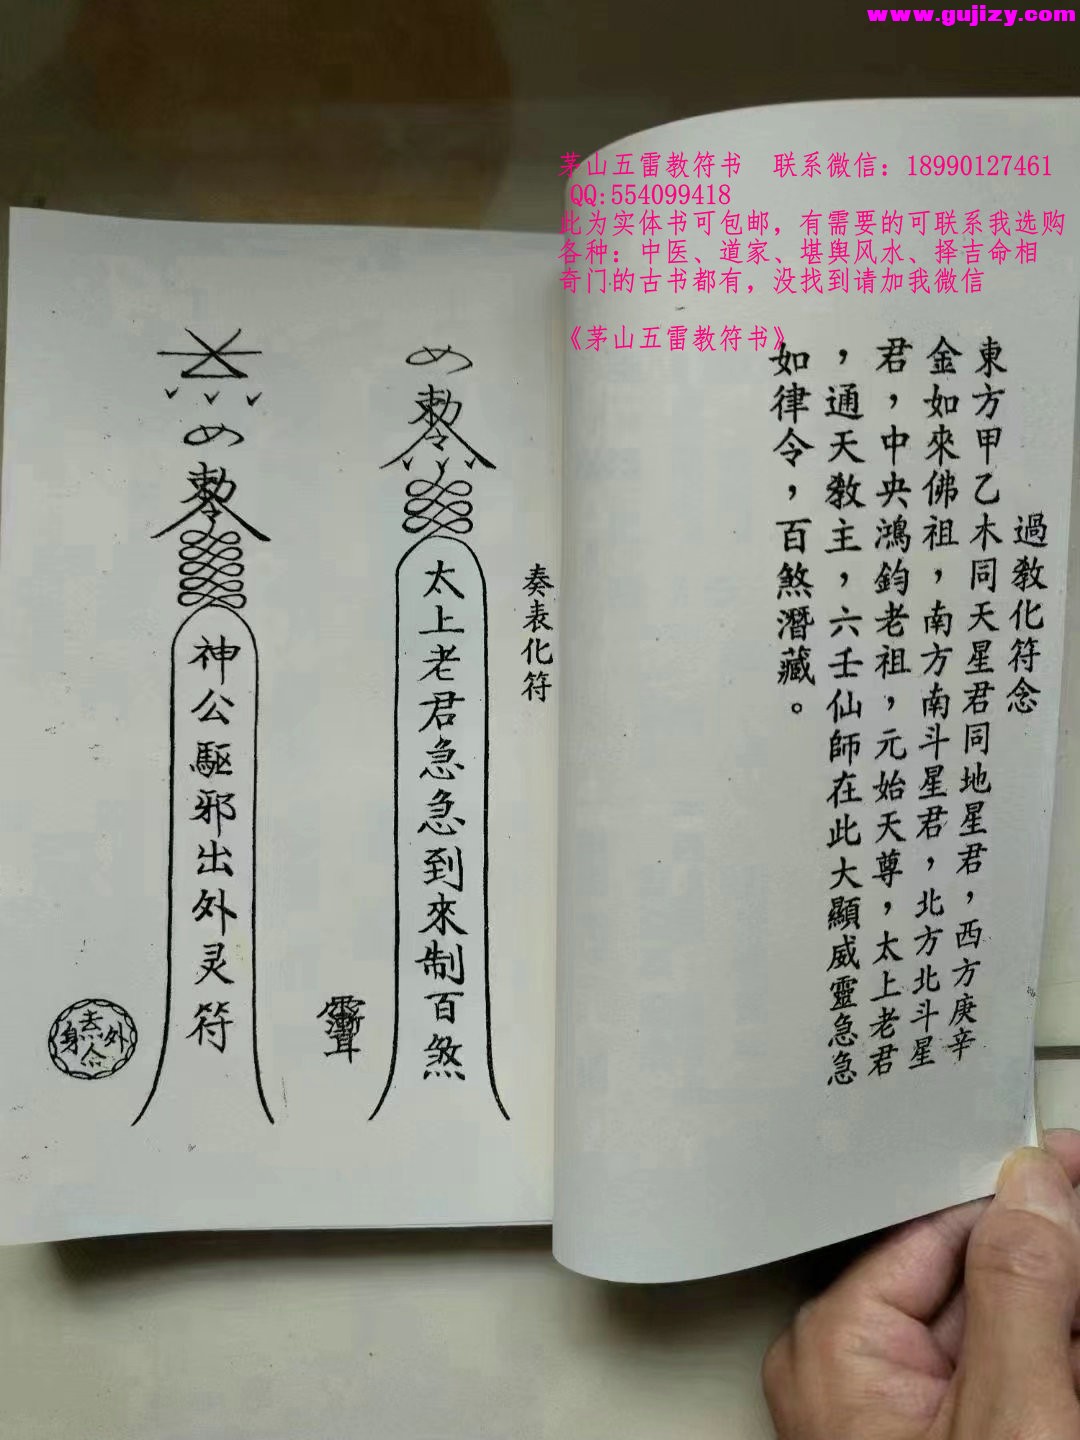 www.gujizy.com
茅山五雷教符书 联系微信：18990127461
QQ:554099418
此为实体书可包邮，有需要的可联系我选购
各种：中医、道家、堪舆风水、择吉命相
奇门的古书都有，没找到请加我微信
《茅山五雷教符书》
過教化符念
東方甲乙木同天星君同地星君，西方庚辛
金如來佛祖，南方南斗星君，北方北斗星
君，中央鴻鈞老祖，元始天尊，太上老君
，通天教主，六壬仙師在此大顯威靈急急
如律令，百煞潛藏。
奏表化符
敕令
太上老君急急到來制百煞
敕令
神公驅邪出外灵符
身
外